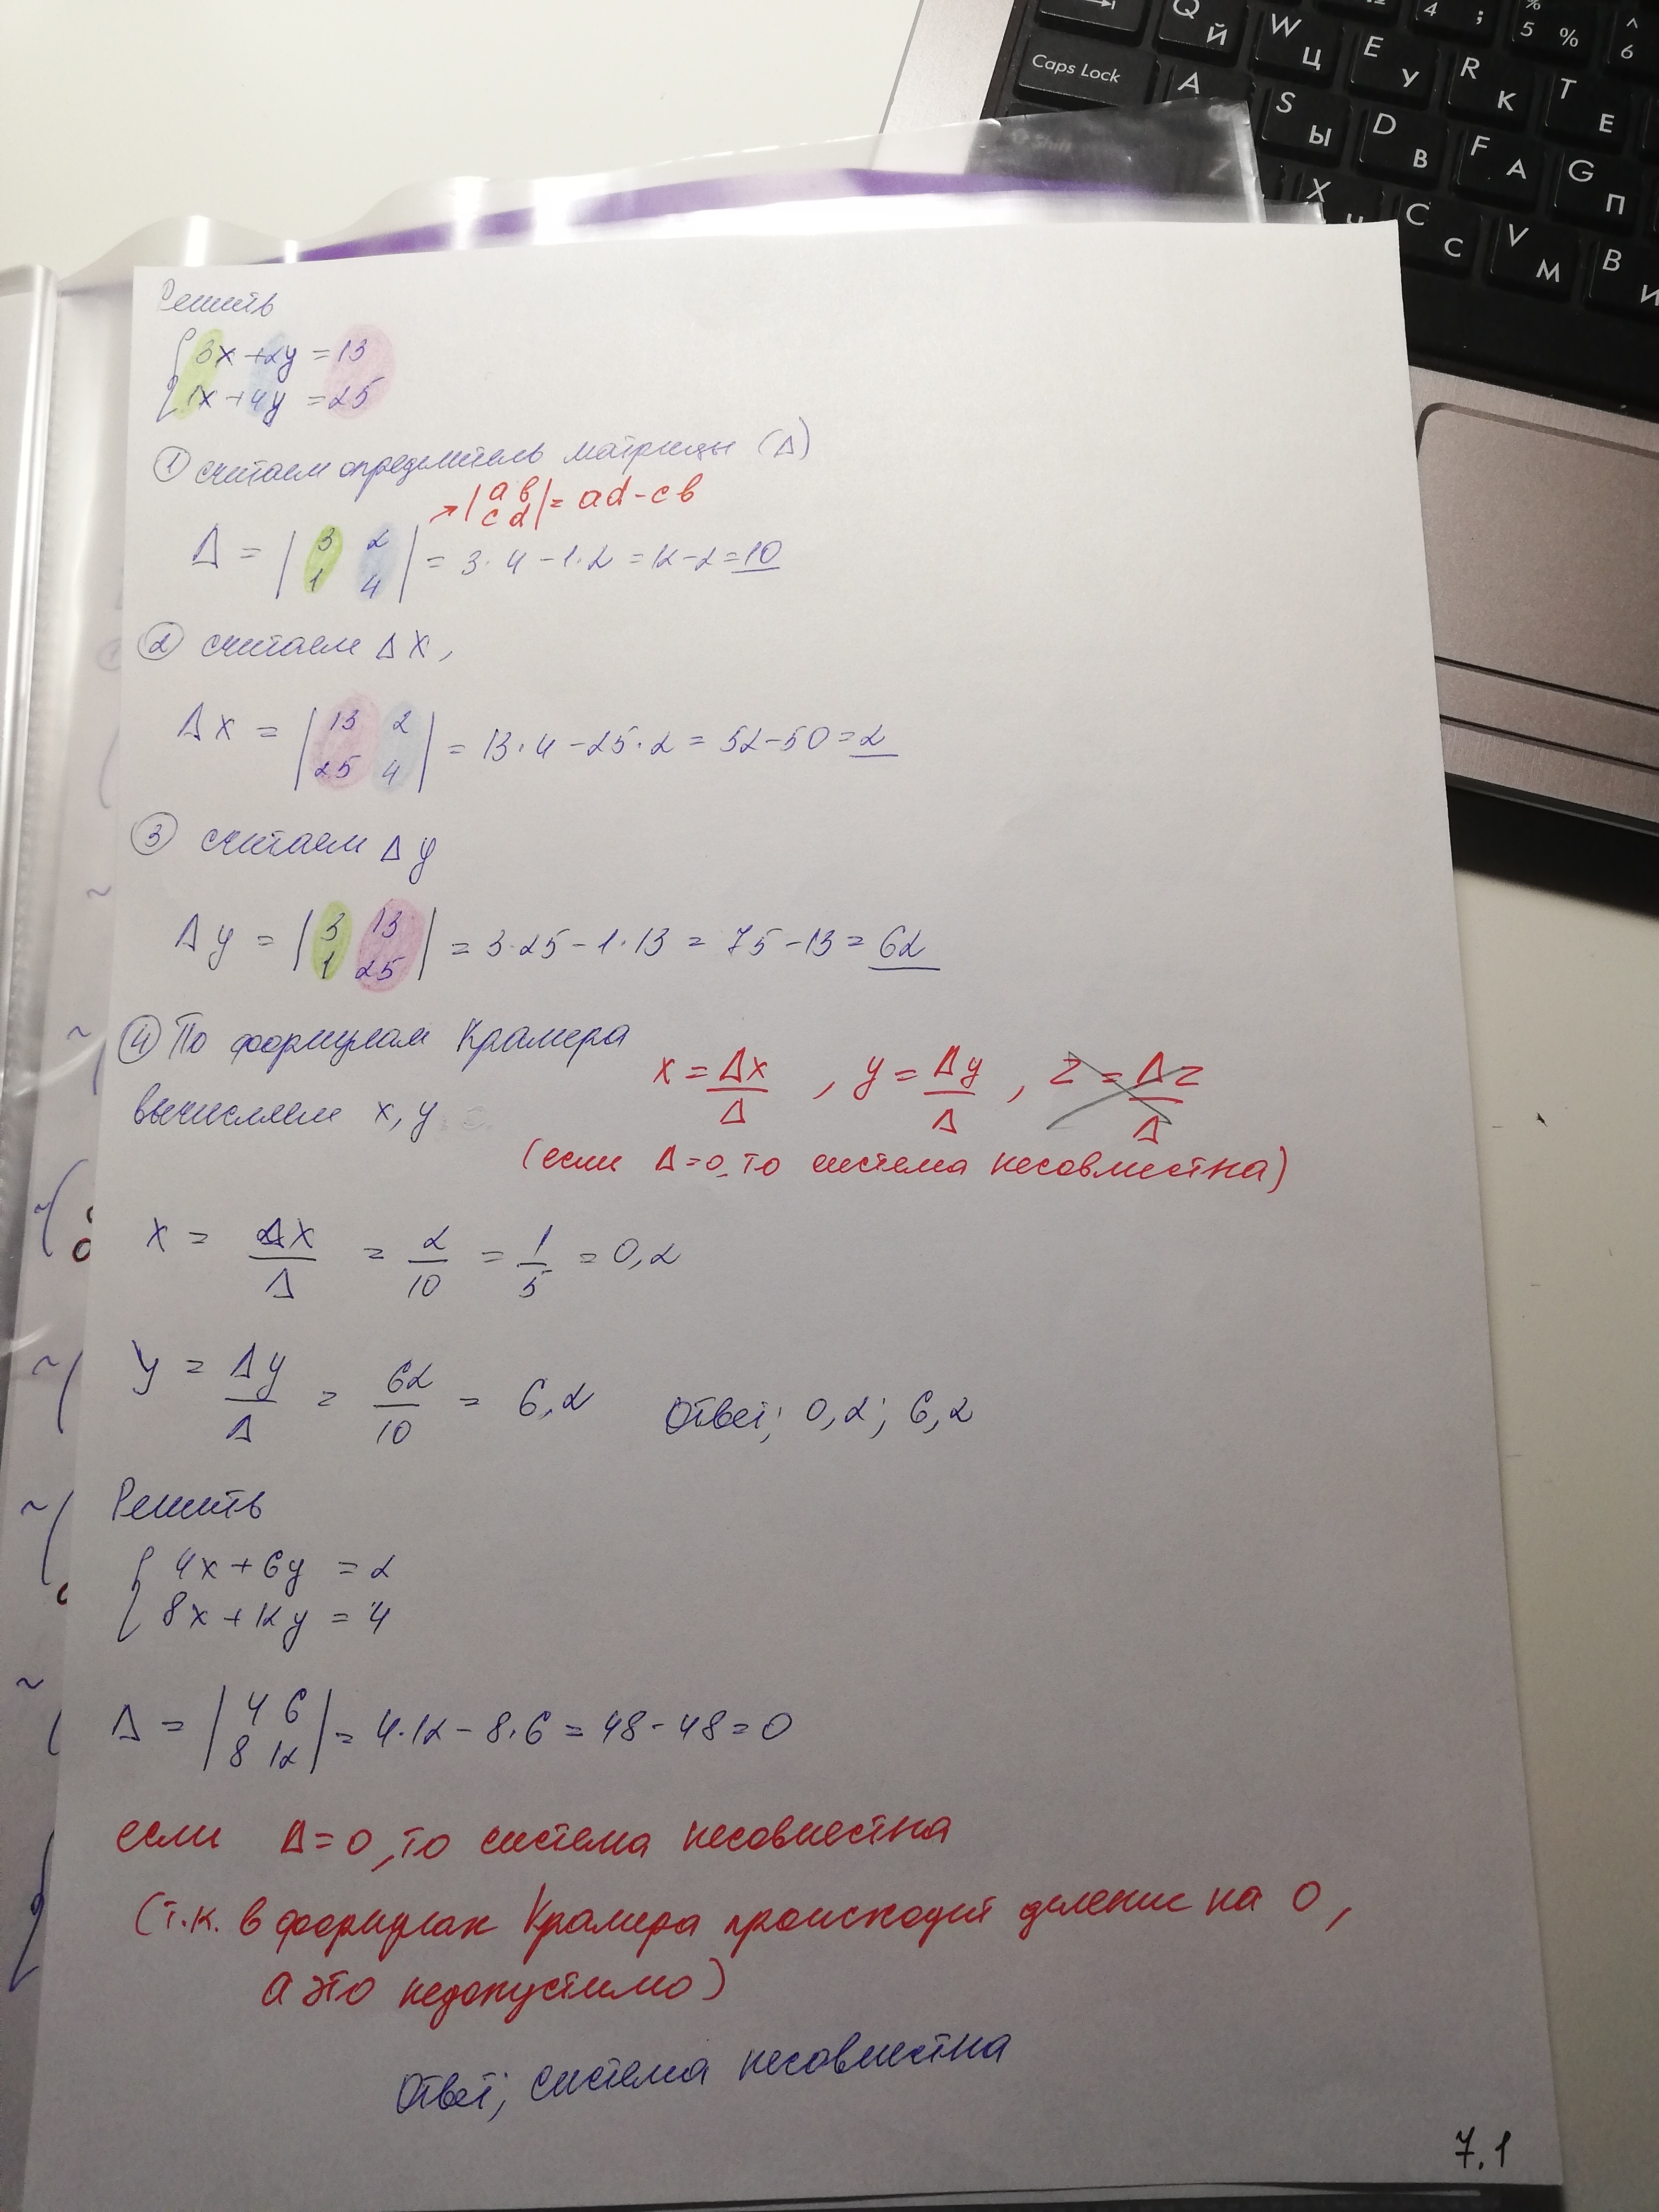 Caps Lock
Q Й
W Ц
E У
R К
T Е
4 ;
5 %
6 ^
A
S Ы
D В
F А
G П
Z
X Ч
C С
V М
B И
Решить
3x + 2y = 13
1x + 4y = 25
① считаем определитель матрицы (Δ)
→ |a b c d| = ad - cb
Δ = |3 2 1 4| = 3·4 - 1·2 = 12 - 2 = 10
② считаем Δx,
Δx = |13 2 25 4| = 13·4 - 25·2 = 52 - 50 = 2
③ считаем Δy
Δy = |3 13 1 25| = 3·25 - 1·13 = 75 - 13 = 62
④ По формулам Крамера
вычисляем x, y
x = Δx/Δ , y = Δy/Δ , z = Δz/Δ
(если Δ=0, то система несовместна)
x = Δx/Δ = 2/10 = 1/5 = 0,2
y = Δy/Δ = 62/10 = 6,2 Ответ; 0,2; 6,2
Решить
4x + 6y = 2
8x + 12y = 4
Δ = |4 6 8 12| = 4·12 - 8·6 = 48 - 48 = 0
если Δ=0, то система несовместна
(т.к. в формулах Крамера происходит деление на 0,
а это недопустимо)
Ответ; система несовместна
7.1